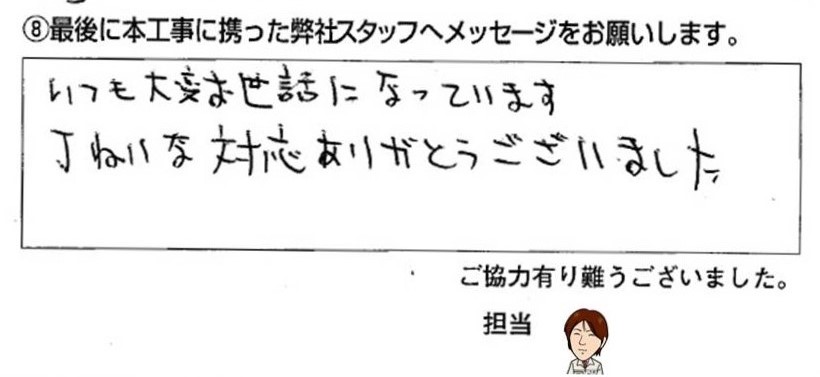 ⑧最後に本工事に携った弊社スタッフへメッセージをお願いします。
いつも大変お世話になっています
丁ねいな対応ありがとうございました
ご協力有り難うございました。
担当